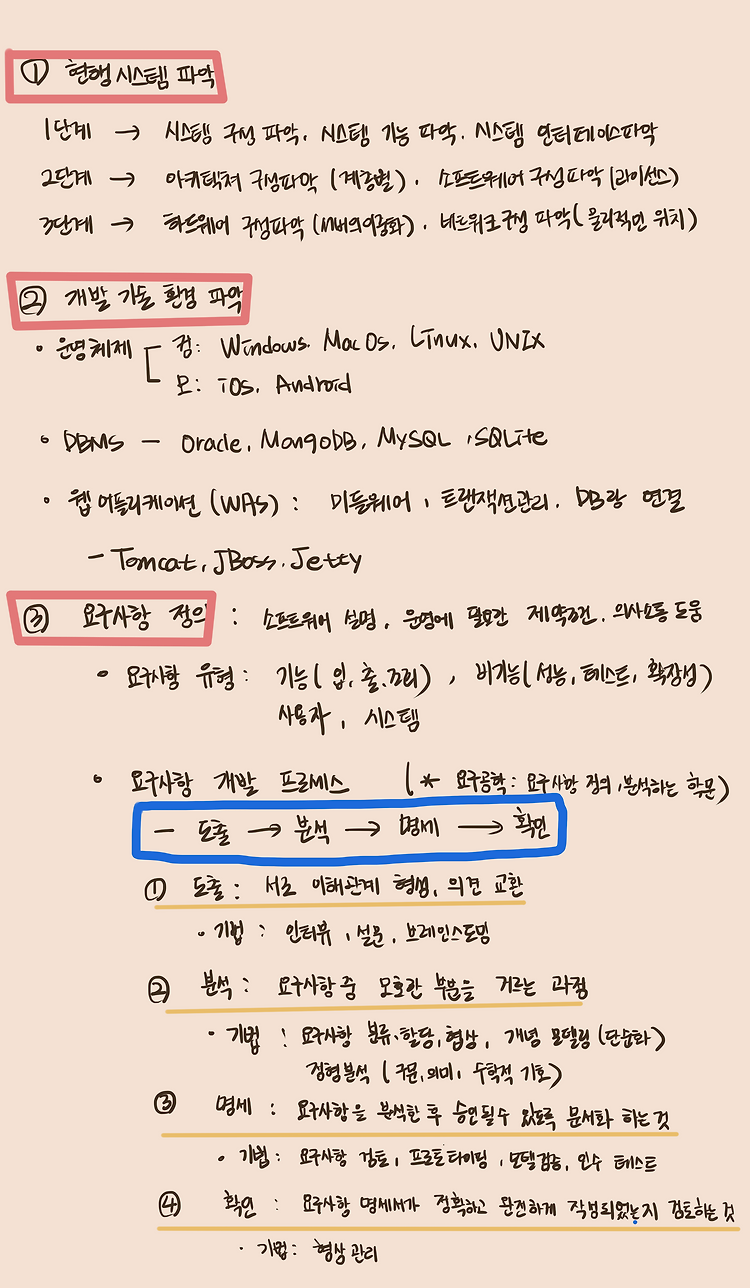 ① 현행 시스템 파악
1단계 → 시스템 구성 파악, 시스템 기능 파악, 시스템 인터페이스파악
2단계 → 아키텍쳐 구성파악 (계층별), 소프트웨어 구성파악 (라이센스)
3단계 → 하드웨어 구성파악 (서버의이중화), 네트워크구성 파악 (물리적인 위치)
② 개발 기술 환경 파악
• 운영체제 컴: Windows, MacOs, Linux, UNIX
모: iOs, Android
• DBMS – Oracle, MongoDB, MySQL, SQLite
• 웹 어플리케이션 (WAs) : 미들웨어, 트랜잭션관리, DB랑 연결
– Tomcat, JBoss, Jetty
③ 요구사항 정의 : 소프트웨어 설명, 운영에 필요한 제약조건, 의사소통 도움
• 요구사항 유형 : 기능 (입, 출, 처리), 비기능 (성능, 테스트, 확장성)
사용자, 시스템
• 요구사항 개발 프로세스 (* 요구공학 : 요구사항 정의, 분석하는 학문)
– 도출 → 분석 → 명세 → 확인
① 도출 : 서로 이해관계 형성, 의견 교환
• 기법 : 인터뷰, 설문, 브레인스토밍
② 분석 : 요구사항 중 모호한 부분을 거르는 과정
• 기법 : 요구사항 분류, 할당, 협상, 개념 모델링 (단순화)
정형분석 (구문, 의미, 수학적 기호)
③ 명세 : 요구사항을 분석한 후 승인될수 있도록 문서화 하는 것
• 기법 : 요구사항 검토, 프로토타이핑, 모델검증, 인수 테스트
④ 확인 : 요구사항 명세서가 정확하고 완전하게 작성되었는지 검토하는 것
• 기법 : 형상 관리